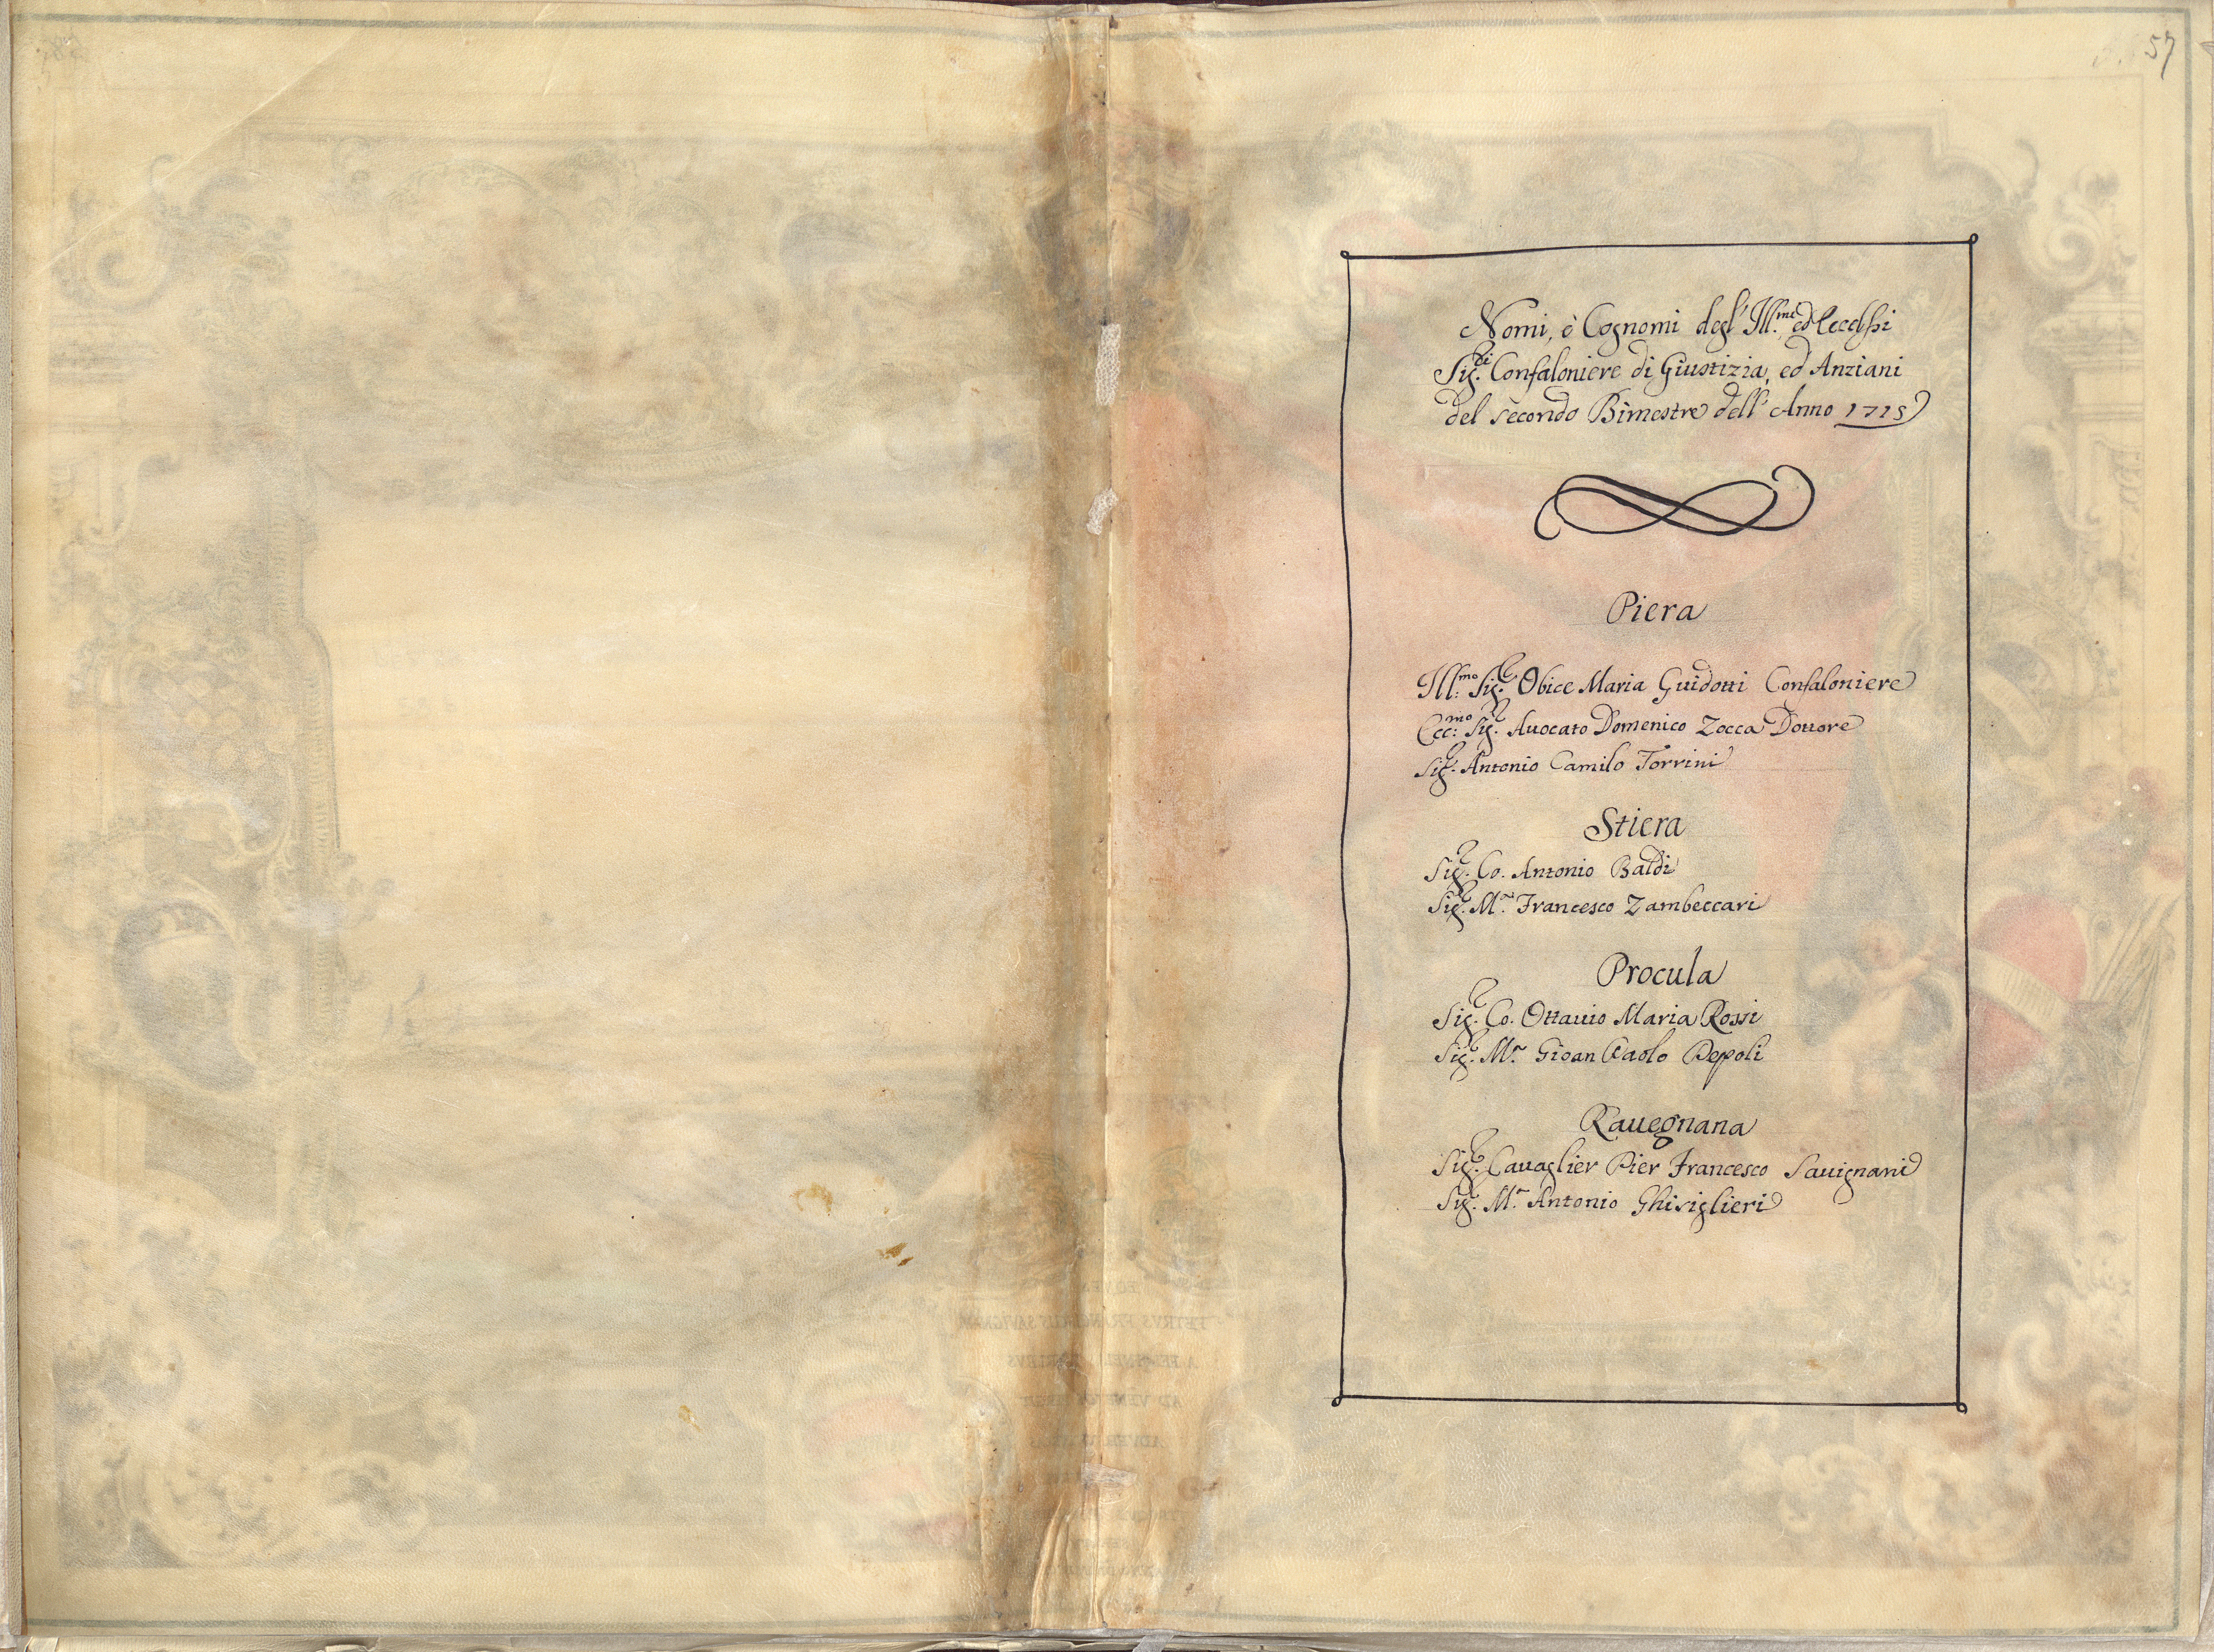 57
Nomi, è Cognomi degl' Ill.mi ed Eccelsi
Sig.ri Confaloniere di Giustizia, ed Anziani
del secondo Bimestre dell' Anno 1715
Piera
Ill:mo Sig.e Obice Maria Guidotti Confaloniere
Ecc:mo Sig.e Auocato Domenico Zocca Dottore
Sig.e Antonio Camilo Torrini
Stiera
Sig.e Co. Antonio Baldi
Sig.e M.r Francesco Zambeccari
Procula
Sig.e Co. Ottauio Maria Rossi
Sig.e M.r Gioan Paolo Pepoli
Rauegnana
Sig.e Cauaglier Pier Francesco Sauignani
Sig.e M.r Antonio Ghisiglieri